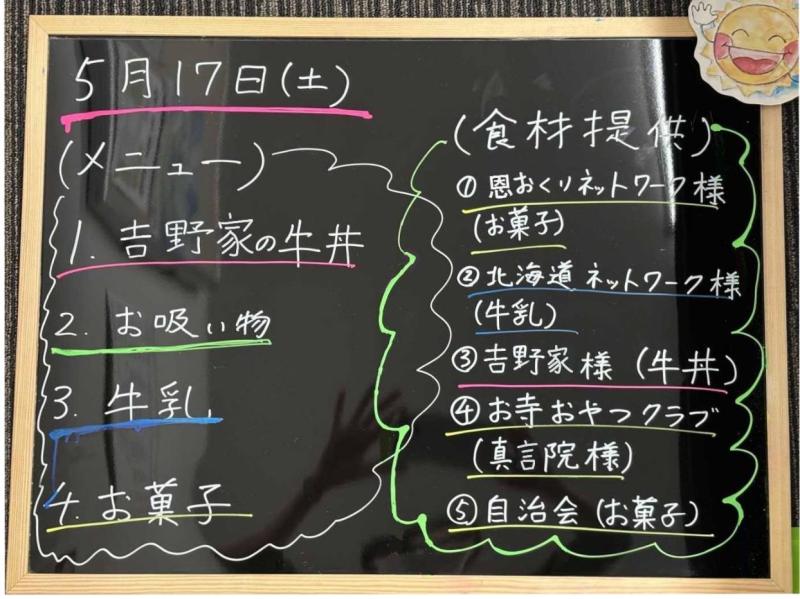 5月17日(土)
(メニュー)
1. 吉野家の牛丼
2. お吸い物
3. 牛乳
4. お菓子
(食材提供)
① 恩おくりネットワーク様
(お菓子)
② 北海道ネットワーク様
(牛乳)
③ 吉野家様 (牛丼)
④ お寺おやつクラブ
(真言院様)
⑤ 自治会 (お菓子)